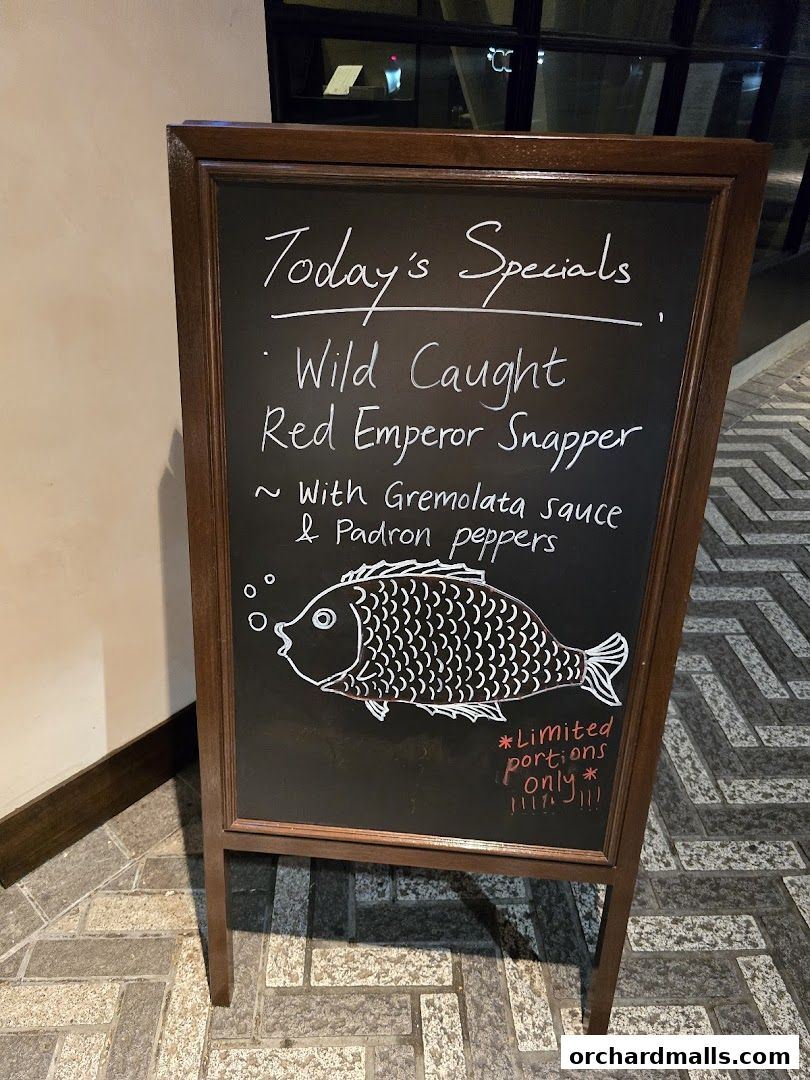 Today's Specials
Wild Caught
Red Emperor Snapper
~ With Gremolata sauce
& Padron peppers
*Limited
portions
only*
!!!!!!!!!
orchardmalls.com